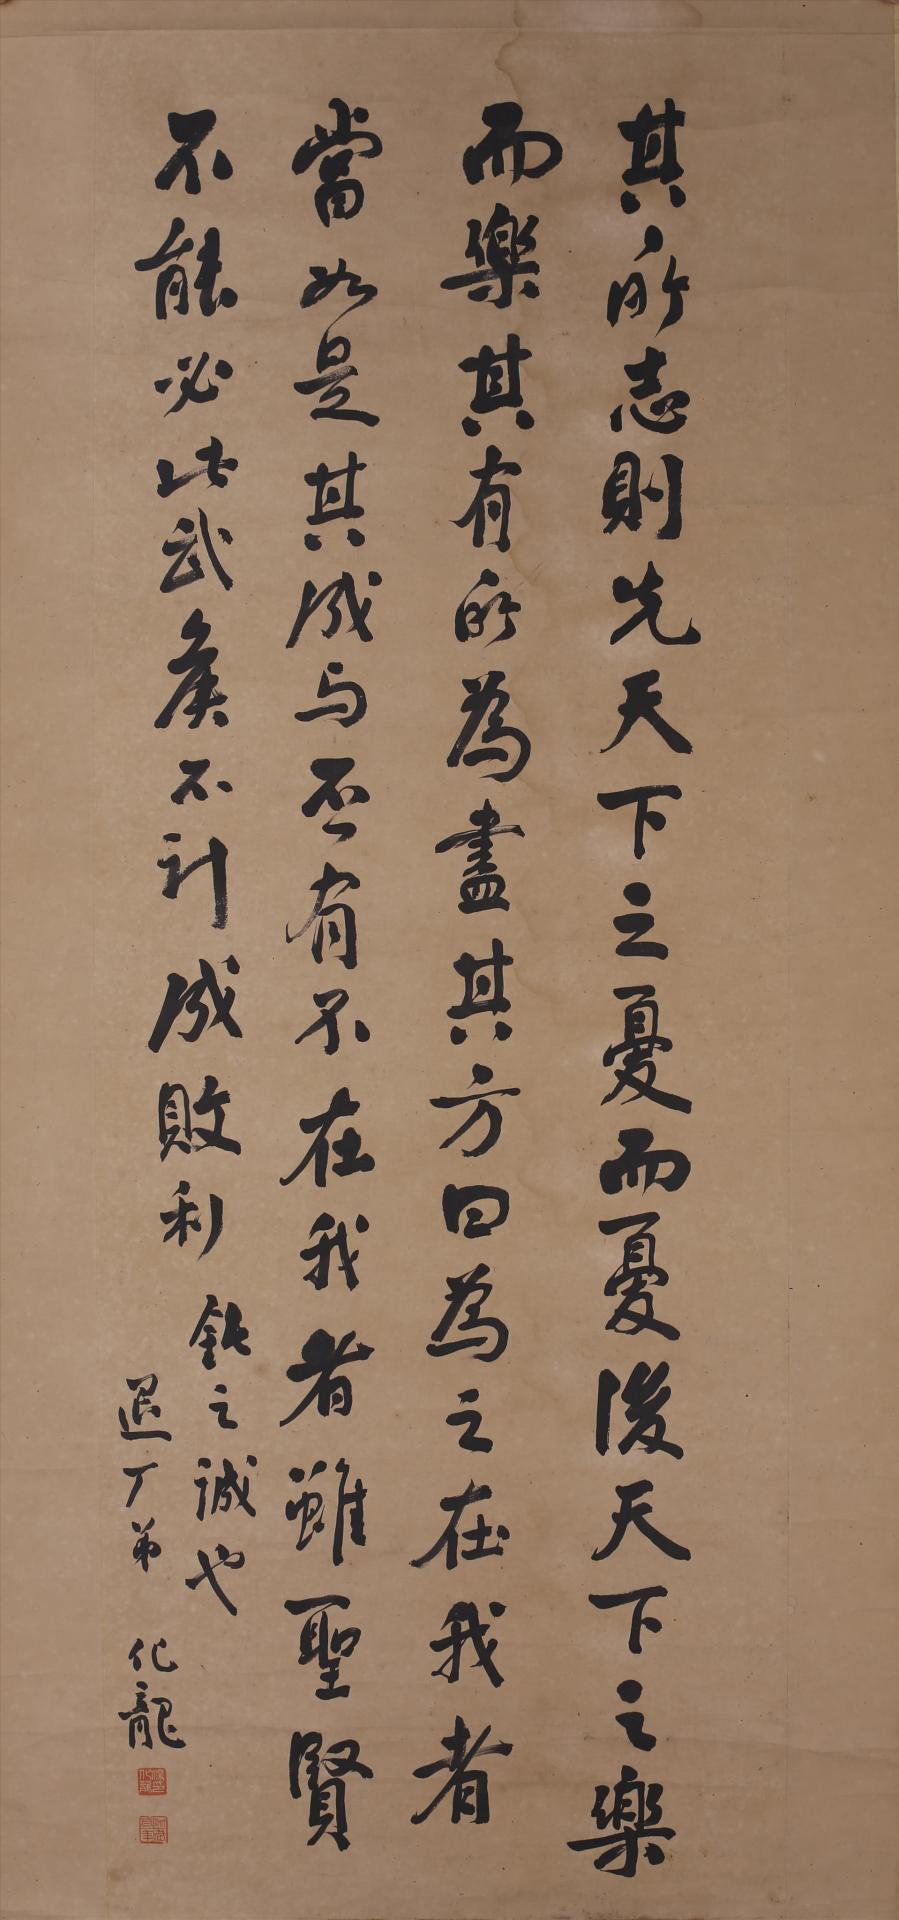 其所志則先天下之憂而憂後天下之樂
而樂其有所為盡其方曰為之在我者
當如是其成与否有不在我者雖聖賢
不能必此武矦不计成敗利
鈍之誠也
退丁弟 化龍